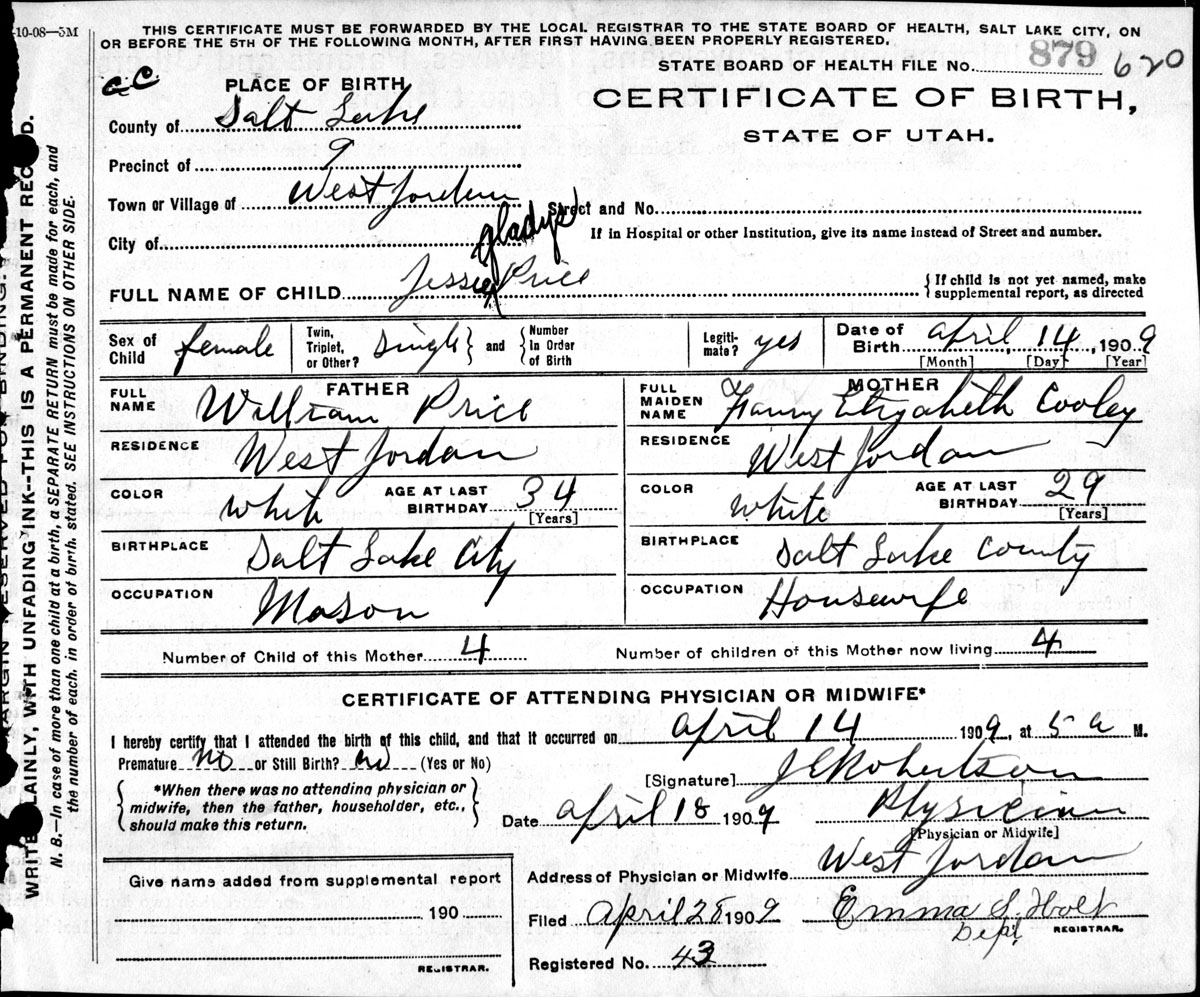 -10-08—5M
THIS CERTIFICATE MUST BE FORWARDED BY THE LOCAL REGISTRAR TO THE STATE BOARD OF HEALTH, SALT LAKE CITY, ON
OR BEFORE THE 5TH OF THE FOLLOWING MONTH, AFTER FIRST HAVING BEEN PROPERLY REGISTERED.
STATE BOARD OF HEALTH FILE NO. 879 620
CC
PLACE OF BIRTH
CERTIFICATE OF BIRTH,
STATE OF UTAH.
County of Salt Lake
Precinct of 9
Town or Village of West Jordan Street and No.
City of If in Hospital or other Institution, give its name instead of Street and number.
Gladys
FULL NAME OF CHILD Jessie Price {If child is not yet named, make
supplemental report, as directed
Sex of Child female Twin, Triplet, or Other? Single and Number In Order of Birth Legiti-mate? yes Date of Birth April 14, 1909
[Month] [Day] [Year]
FATHER MOTHER
FULL NAME William Price FULL MAIDEN NAME Fanny Elizabeth Cooley
RESIDENCE West Jordan RESIDENCE West Jordan
COLOR White AGE AT LAST BIRTHDAY 34 [Years] COLOR White AGE AT LAST BIRTHDAY 29 [Years]
BIRTHPLACE Salt Lake City BIRTHPLACE Salt Lake County
OCCUPATION Mason OCCUPATION Housewife
Number of Child of this Mother 4 Number of children of this Mother now living 4
CERTIFICATE OF ATTENDING PHYSICIAN OR MIDWIFE*
I hereby certify that I attended the birth of this child, and that it occurred on April 14 1909, at 5 a M.
Premature No or Still Birth? no (Yes or No)
[Signature] J E Robertson
*When there was no attending physician or
midwife, then the father, householder, etc.,
should make this return.
Date April 18 1909 Physician
[Physician or Midwife]
Address of Physician or Midwife West Jordan
Give name added from supplemental report
190
REGISTRAR.
Filed April 28 1909 Emma S. Holt
Dept. REGISTRAR.
Registered No. 43
MARGIN RESERVED FOR BINDING.
WRITE PLAINLY, WITH UNFADING INK--THIS IS A PERMANENT RECORD.
N. B.—In case of more than one child at a birth, a SEPARATE RETURN must be made for each, and
the number of each, in order of birth, stated. SEE INSTRUCTIONS ON OTHER SIDE.